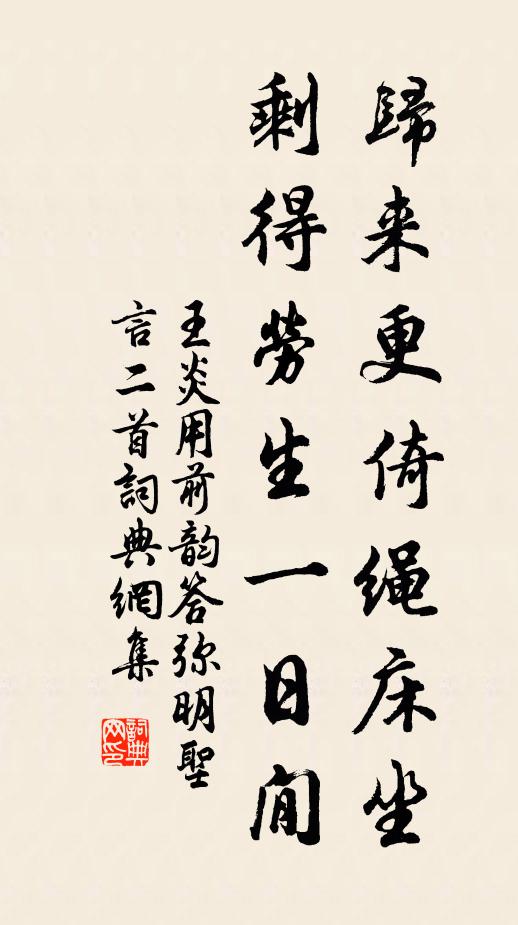 歸来更倚绳床坐
剩得勞生一日间
王炎用前韵答弥明聖
言二首詞典網集
詞典網印